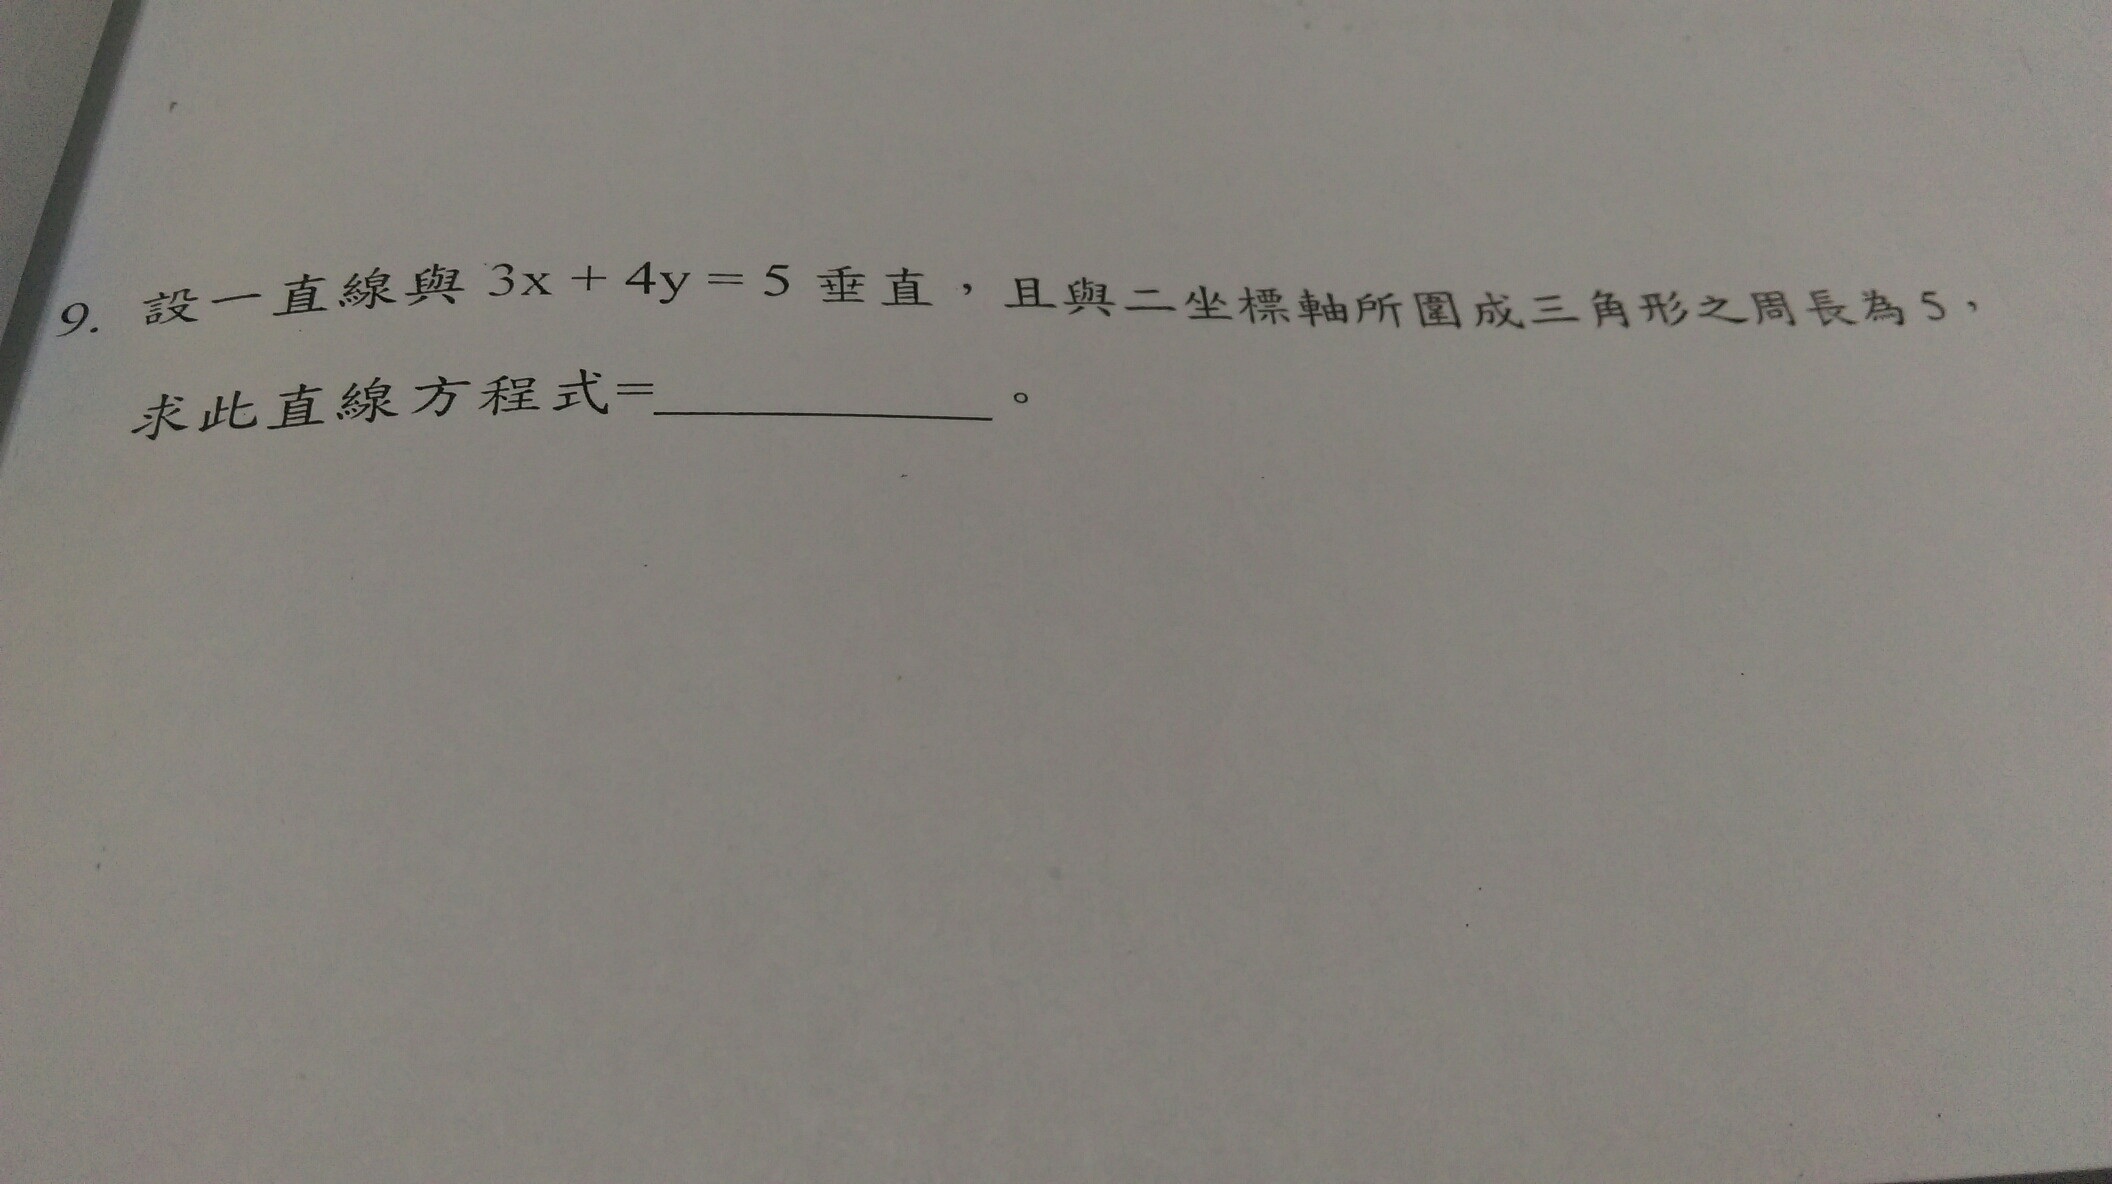 9. 設一直線與 3x + 4y = 5 垂直，且與二坐標軸所圍成三角形之周長為5，
求此直線方程式=____________。